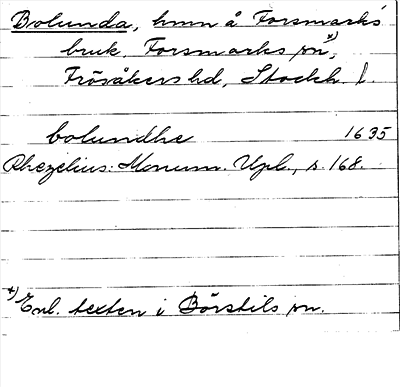 Bolunda, hmn å Forsmarks
bruk, Forsmarks sn *),
Frösåkers hd, Stockh. l.
bolundhe 1635
Rhezelius: Monum. Upl., s. 168.
*) Enl. texten i Börstils sn.